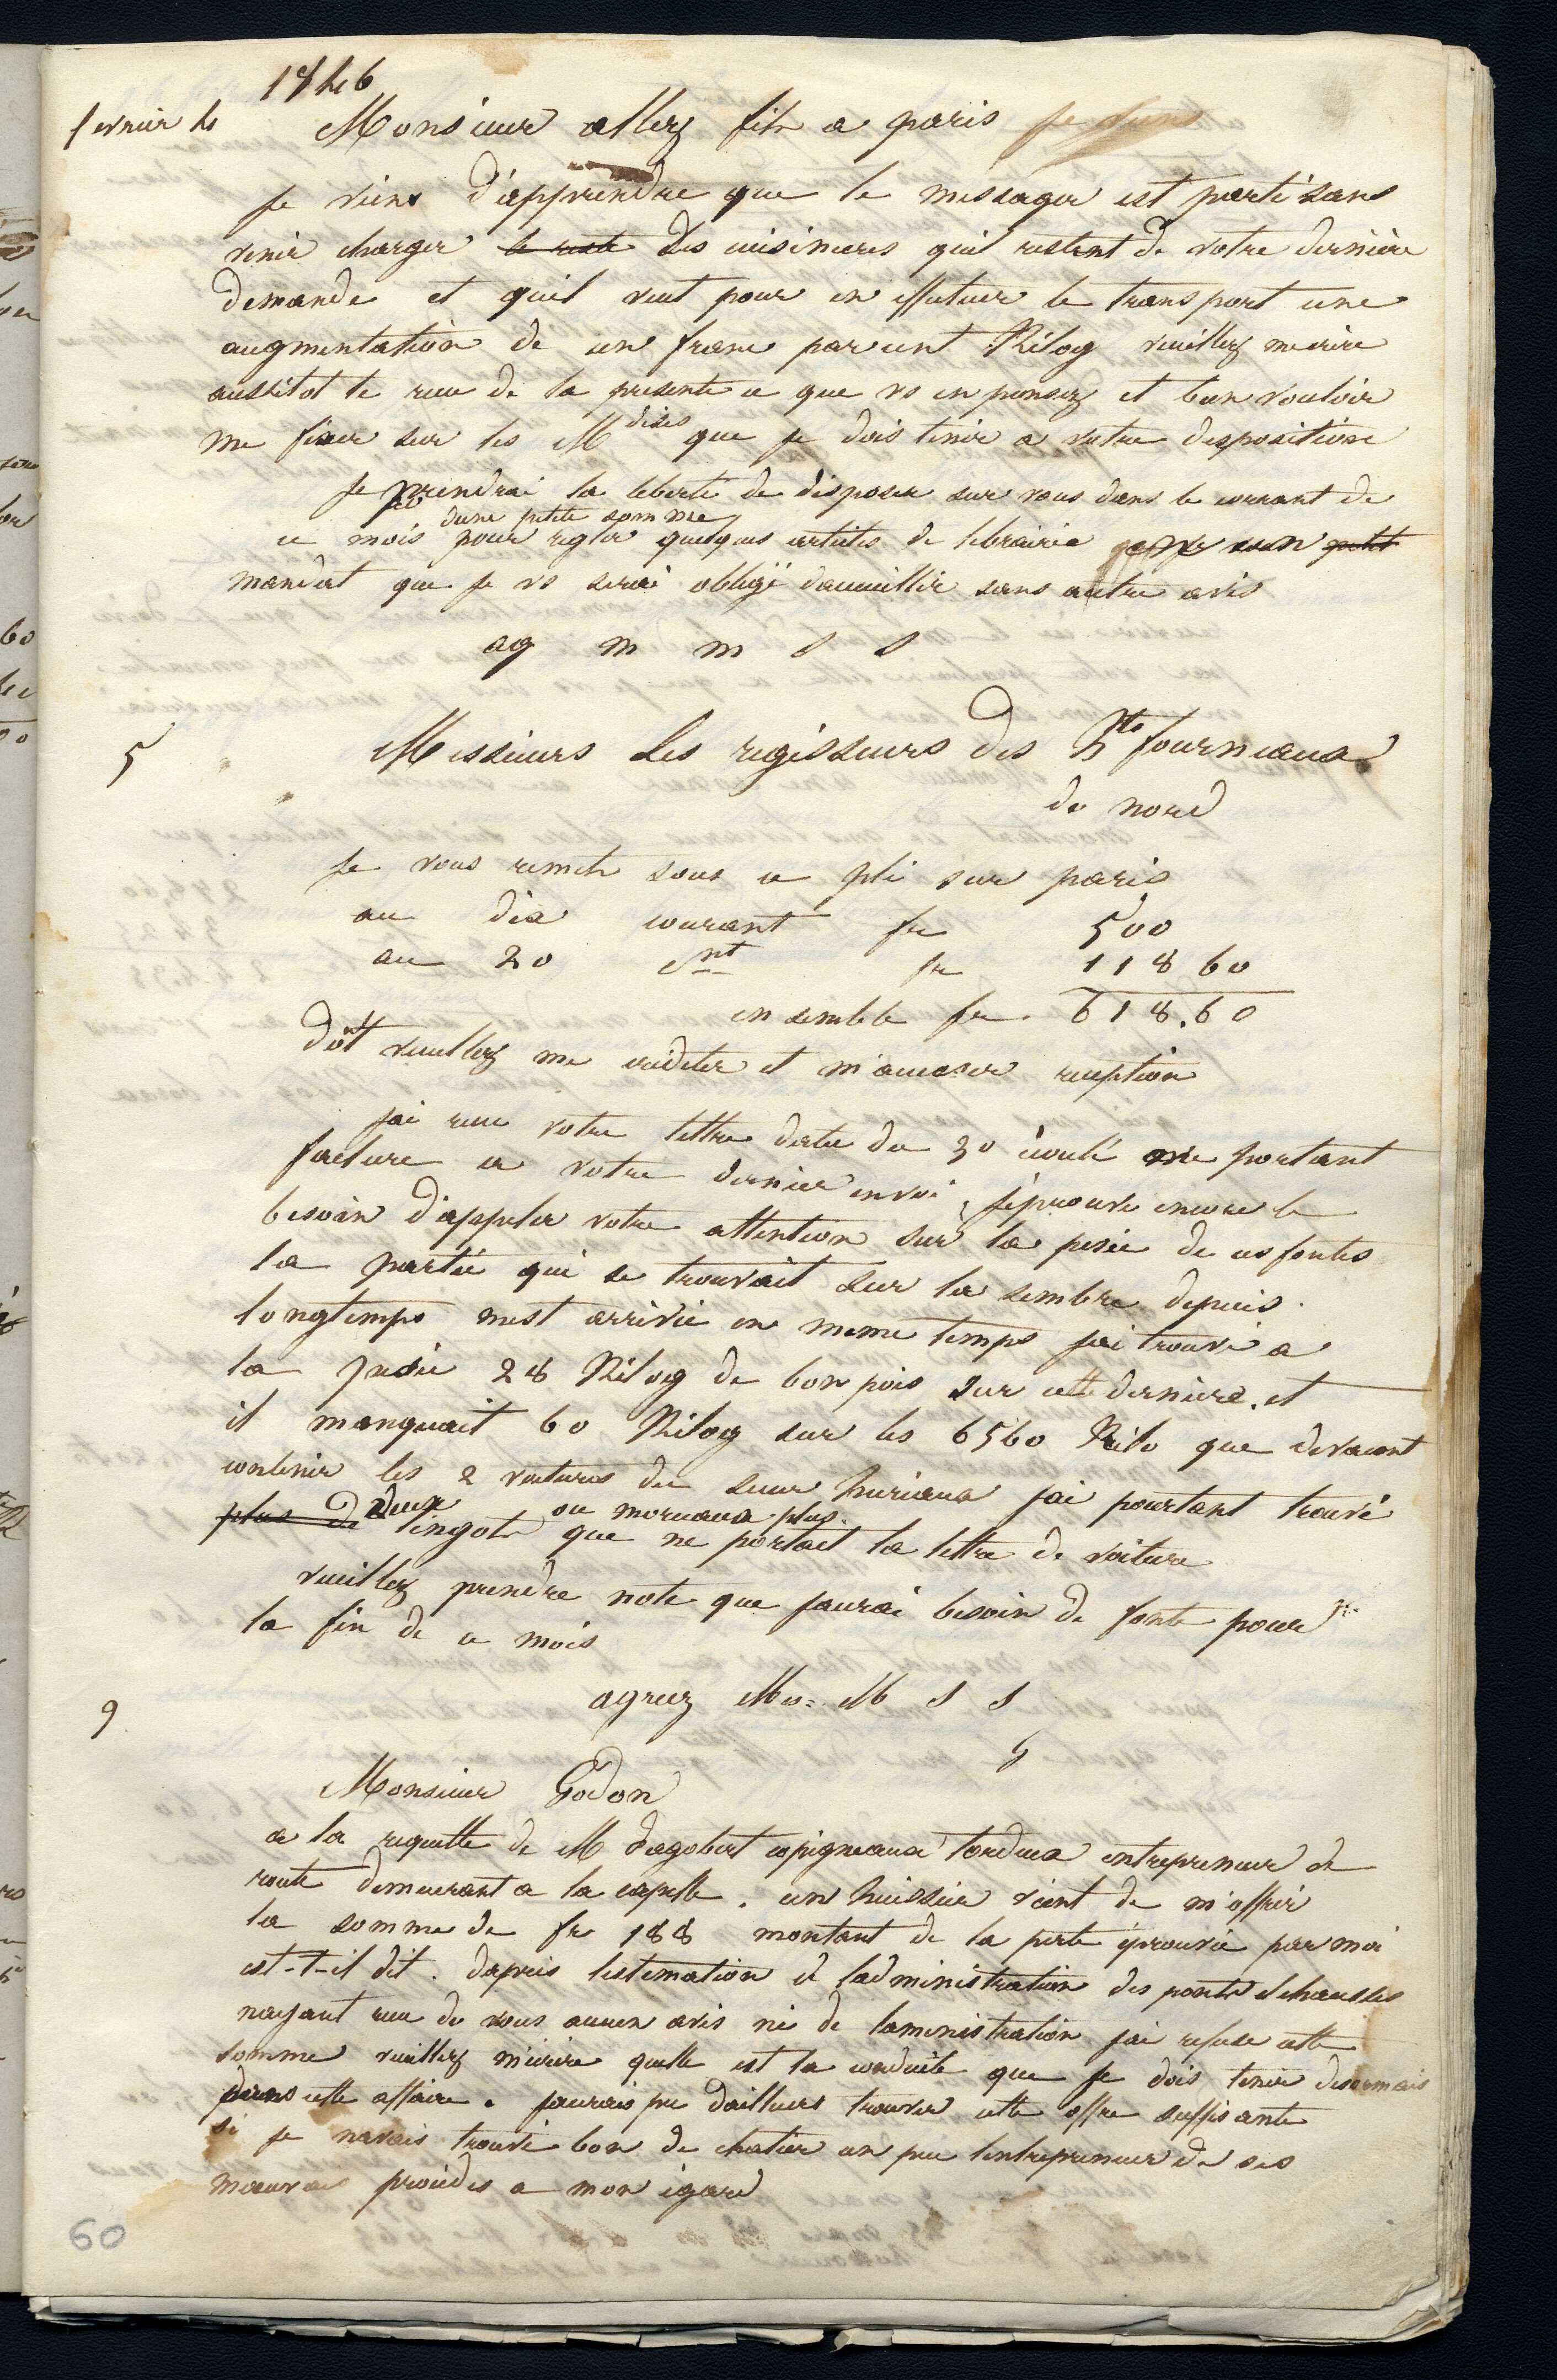 1846
fevrier 4 Monsieur allez fils a paris
je viens d'apprendre que le messager est parti sans
venir charger le reste des cuisinieres qui restent de votre derniere
demande et quil veut pour en effectuer le transport une
augmentation de un franc par cent Kilog veuillez mecrire
aussitot le recu de la presente ce que vs en pensez et bien vouloir
me fixer sur les Mdises que je dois tenir a votre disposition
je prendrai la liberte de disposer sur vous dans le courant de
ce mois dune petite somme pour regler quelques articles de librairie petit
mandat que je vs serai obligé daccueillir sans autre avis
ag m m s s
5 Messieurs les regisseurs des hts fourneaux
du nord
je vous remets sous ce pli sur paris
au dix courant fr 500
au 20 cnt fr 118 60
ensemble fr. 618.60
dont veuillez me crediter et m'accuser reception
jai recu votre lettre datée du 30 écoulé me portant
facture a votre dernier envoi, j'éprouve encore le
besoin d'appeler votre attention sur la pesée de vos fontes
la partie qui se trouvait sur la sembre depuis
longtemps mest arrivée en meme temps jai trouvé a
la pesée 28 Kilog de bon pois sur cette derniere. et
il manquait 60 Kilog sur les 6560 Kilo que devaient
contenir les 2 voitures du sieur huriaux jai pourtant trouvé
plus de deux lingots ou morceaux plus. que ne portait la lettre de voiture
veuillez prendre note que jaurai besoin de fonte pour
la fin de ce mois
agreez Ms= M s s
G
9 Monsieur Godon
a la requette de M dagobert copigneaux tordeux entrepreneur de
route demeurant a la capelle. un huissier vient de m'offrir
la somme de fr 188 montant de la perte éprouvée par moi
est-t-il dit. dapres lestimation de ladministration des ponts et chaussées
nayant recu de vous aucun avis ni de laministration jai refusé cette
somme veuillez m'écrire quelle est la conduite que je dois tenir desormais
dans cette affaire. jaurais pu dailleurs trouver cette offre suffisante
si je navais trouvé bon de chatier un peu lentrepreneur de ses
mauvais procédés a mon égard
60